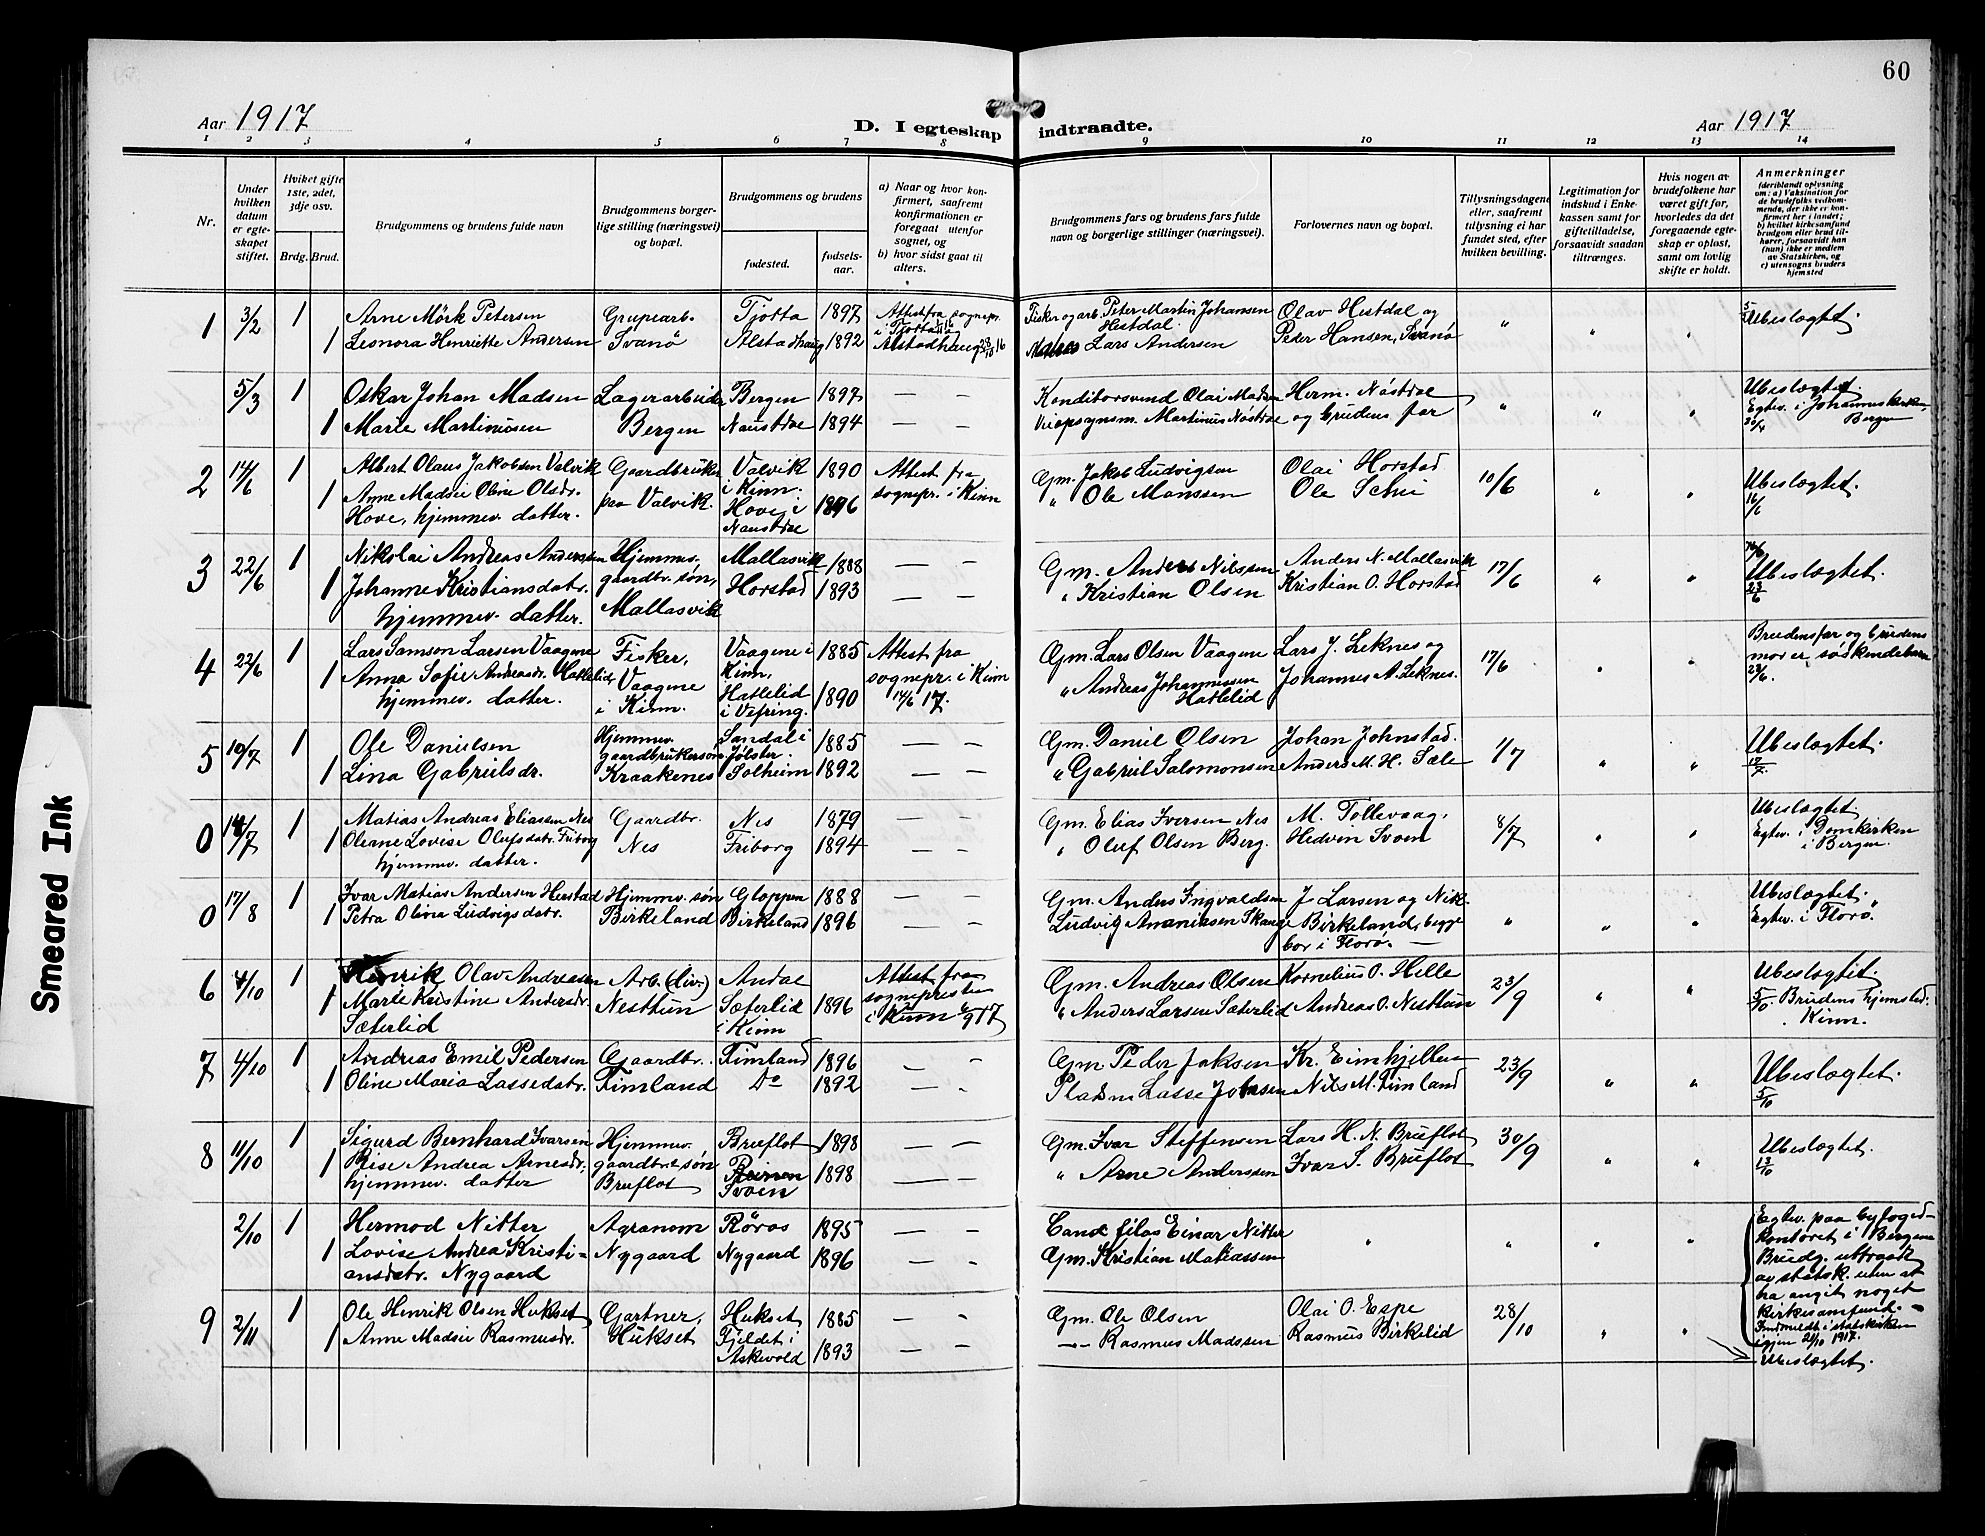 60
Aar 1917
D. I egteskap indtraadte.
Aar 1917
1 2 3 4 5 6 7 8 9 10 11 12 13 14
Nr.
Under hvilken datum er egteskapet stiftet.
Hviket gifte 1ste, 2det, 3dje osv.
Brdg. Brud.
Brudgommens og brudens fulde navn
Brudgommens borgerlige stilling (næringsvei) og bopæl.
Brudgommens og brudens
fødested.
fødselsaar.
a) Naar og hvor konfirmert, saafremt konfirmationen er foregaat utenfor sognet, og
b) hvor sidst gaat til alters.
Brudgommens fars og brudens fars fulde navn og borgerlige stillinger (næringsvei).
Forlovernes navn og bopæl.
Tillysningsdagene eller, saafremt tillysning ei har fundet sted, efter hvilken bevilling.
Legitimation for indskud i Enkekassen samt for giftetilladelse, forsaavidt saadan tiltrænges.
Hvis nogen av brudefolkene har været gift før, hvorledes da det foregaaende egteskap er opløst, samt om lovlig skifte er holdt.
Anmerkninger
(deriblandt oplysning om: a) Vaksination for de brudefolks vedkommende, der ikke er konfirmert her i landet; b) hvilket kirkesamfund brudgom eller brud tilhører, forsaavidt han (hun) ikke er medlem av Statskirken, og c) utensogns bruders hjemsted
1 3/2 1 Arne Mörk Petersen Grupearb. Tjotta 1897 Attest fra sognepr. Fisker og arb. Peter Martin Johansen Olav Hestdal og " " " 5/2 Ubeslegtet.
1 Leonora Henriette Andersen Svanö Alstadhaug 1892 i Tjotta Alstadhaug 28/10 16 Hestdal Lars Andersen Peder Hansen, Svanö
5/3 1 Oskar Johan Madsen Lagerarbeider Bergen 1897 — — Konditorsvend Olai Madsen Herm. Nöstdae " " " Ubeslegtet.
1 Marie Martinusen Bergen Naustdae 1894 — — Veiopsynsm. Martinus Nöstdae og brudens far Egtev. i Johanneskirken, Bergen
2 14/6 1 Albert Olaus Jakobsen Valvik Gaardbruker Valvik i Kinn. 1890 Attest fra Gm. Jakob Ludvigsen Olai Horstad 10/6 " " Ubeslegtet.
1 Anne Madsie Oline Olsdr. paa Valvik. Hove i Naustdae 1896 sognepr. i Kinn " Ole Monssen Ole Schei 16/6
Hove, hjemmev. datter.
3 22/6 1 Nikolai Andreas Anderssen Hjemmev. Mallasvik 1888 — — Gm. Anders Nilssen Anders N. Mallasvik 17/6 " " Ubeslegtet.
1 Johanne Kristiansdatr. gaardbr. søn, Horstad 1893 — — " Kristian Olsen Kristian O. Horstad 23/6
hjemmev. datter. Mallasvik
4 22/6 1 Lars Samson Larsen Vaagene Fisker, Vaagene i Kinn, 1885 Attest fra Gm. Lars Olsen Vaagene Lars J. Leknes og 17/6 " " Brudens far og brudens
1 Anna Sofie Andreasdr. Hatlelid, Vaagene Hatlelid 1890 sognepr. i Kinn " Andreas Johannessen Johannes A. Leknes. mor er søskendebarn
hjemmev. datter. i Kinn. i Vefring. 14/6 17. Hatlelid 23/6.
5 10/7 1 Ole Danielsen Hjemmev. gaardbrukersøn, Sandal i Jølster 1885 — — Gm. Daniel Olsen Johan Johnstad. 1/7 " " Ubeslegtet.
1 Lina Gabrielsdr. Kraakenes Solheim 1892 — — " Gabriel Salomonsen Anders M. H. Sæle 12/7.
0 14/7 1 Matias Andreas Eliassen Nes Gaardbr. Nes 1879 — — Gm. Elias Iversen Nes M. Tollevaag, 8/7 " " Ubeslegtet.
1 Olerne Lovise Olufsdatr. Friborg Nes Friborg 1894 — — " Oluf Olsen Berg. Hedvin Svoen Egtev. i Domkirken
hjemmev. datter. i Bergen.
0 17/8 1 Ivar Matias Andersen Herstad Hjemmev. søn Gloppen 1888 — — Gm. Anders Ingvaldsen J Larsen og Nik. " " " Ubeslegtet.
1 Petra Olina Ludvigsdatr. Birkeland Birkeland 1896 — — Ludvig Ananiassen Skauge Birkeland, begge Egtev. i Florö.
bor i Florö. —
6 4/10 1 Henrik Olav Andreassen Arb. (div.) Andal Attest fra Gm. Andreas Olsen Kornelius O. Helle 23/9 " " Ubeslegtet.
1 Marie Kristine Andersdr. Nesttun Sæterlid 1896 sognepresten " Anders Larsen Sæterlid Andreas O. Nesttun 5/10 Brudens hjemsted.
Sæterlid i Kinn i Kinn 6/9 17 Kinn.
7 4/10 1 Andreas Emil Pedersen Gaardbr. Timland 1896 — — Gm Peder Jaksen Kr. Eimhjellen 23/9 " " Ubeslegtet.
1 Oline Maria Lassedatr. Timland Do 1892 — — Pladsm Lasse Johnsen Nils M. Timland 5/10
8 11/10 1 Sigurd Bernhard Ivarsen Hjemmev. Bruflot 1898 — — Gm. Ivar Steffensen Lars H. N. Bruflot 30/9 " " Ubeslegtet.
1 Bise Andrea Arnesdr. gaardbr. søn Svoen 1898 — — " Arne Anderssen Ivar S. Bruflot 13/10
hjemmev. datter Bruflot
2/10 1 Hermod Nitter Agronom Röros 1895 — — Cand filos Einar Nitter " " " " Egtev. paa byfogedkontoret i Bergen
1 Lovise Andrea Kristiansdatr. Nygaard Nygaard Nygaard 1896 — — Gm. Kristian Matiassen Brudg. uttraadt av statsk. uten at ha angit noget kirkesamfund. — Indmeldt i statskirken igjen 21/10 1917.
9 2/11 1 Ole Henrik Olsen Hukset Gartner, Hukset 1885 — — Gm. Ole Olsen Olai O. Espe 28/10 " " Ubeslegtet.
1 Anne Madsie Rasmusdr. Hukset Fjeldet i Askevold 1893 — — — Rasmus Madssen Rasmus Birkelid
Smeared Ink